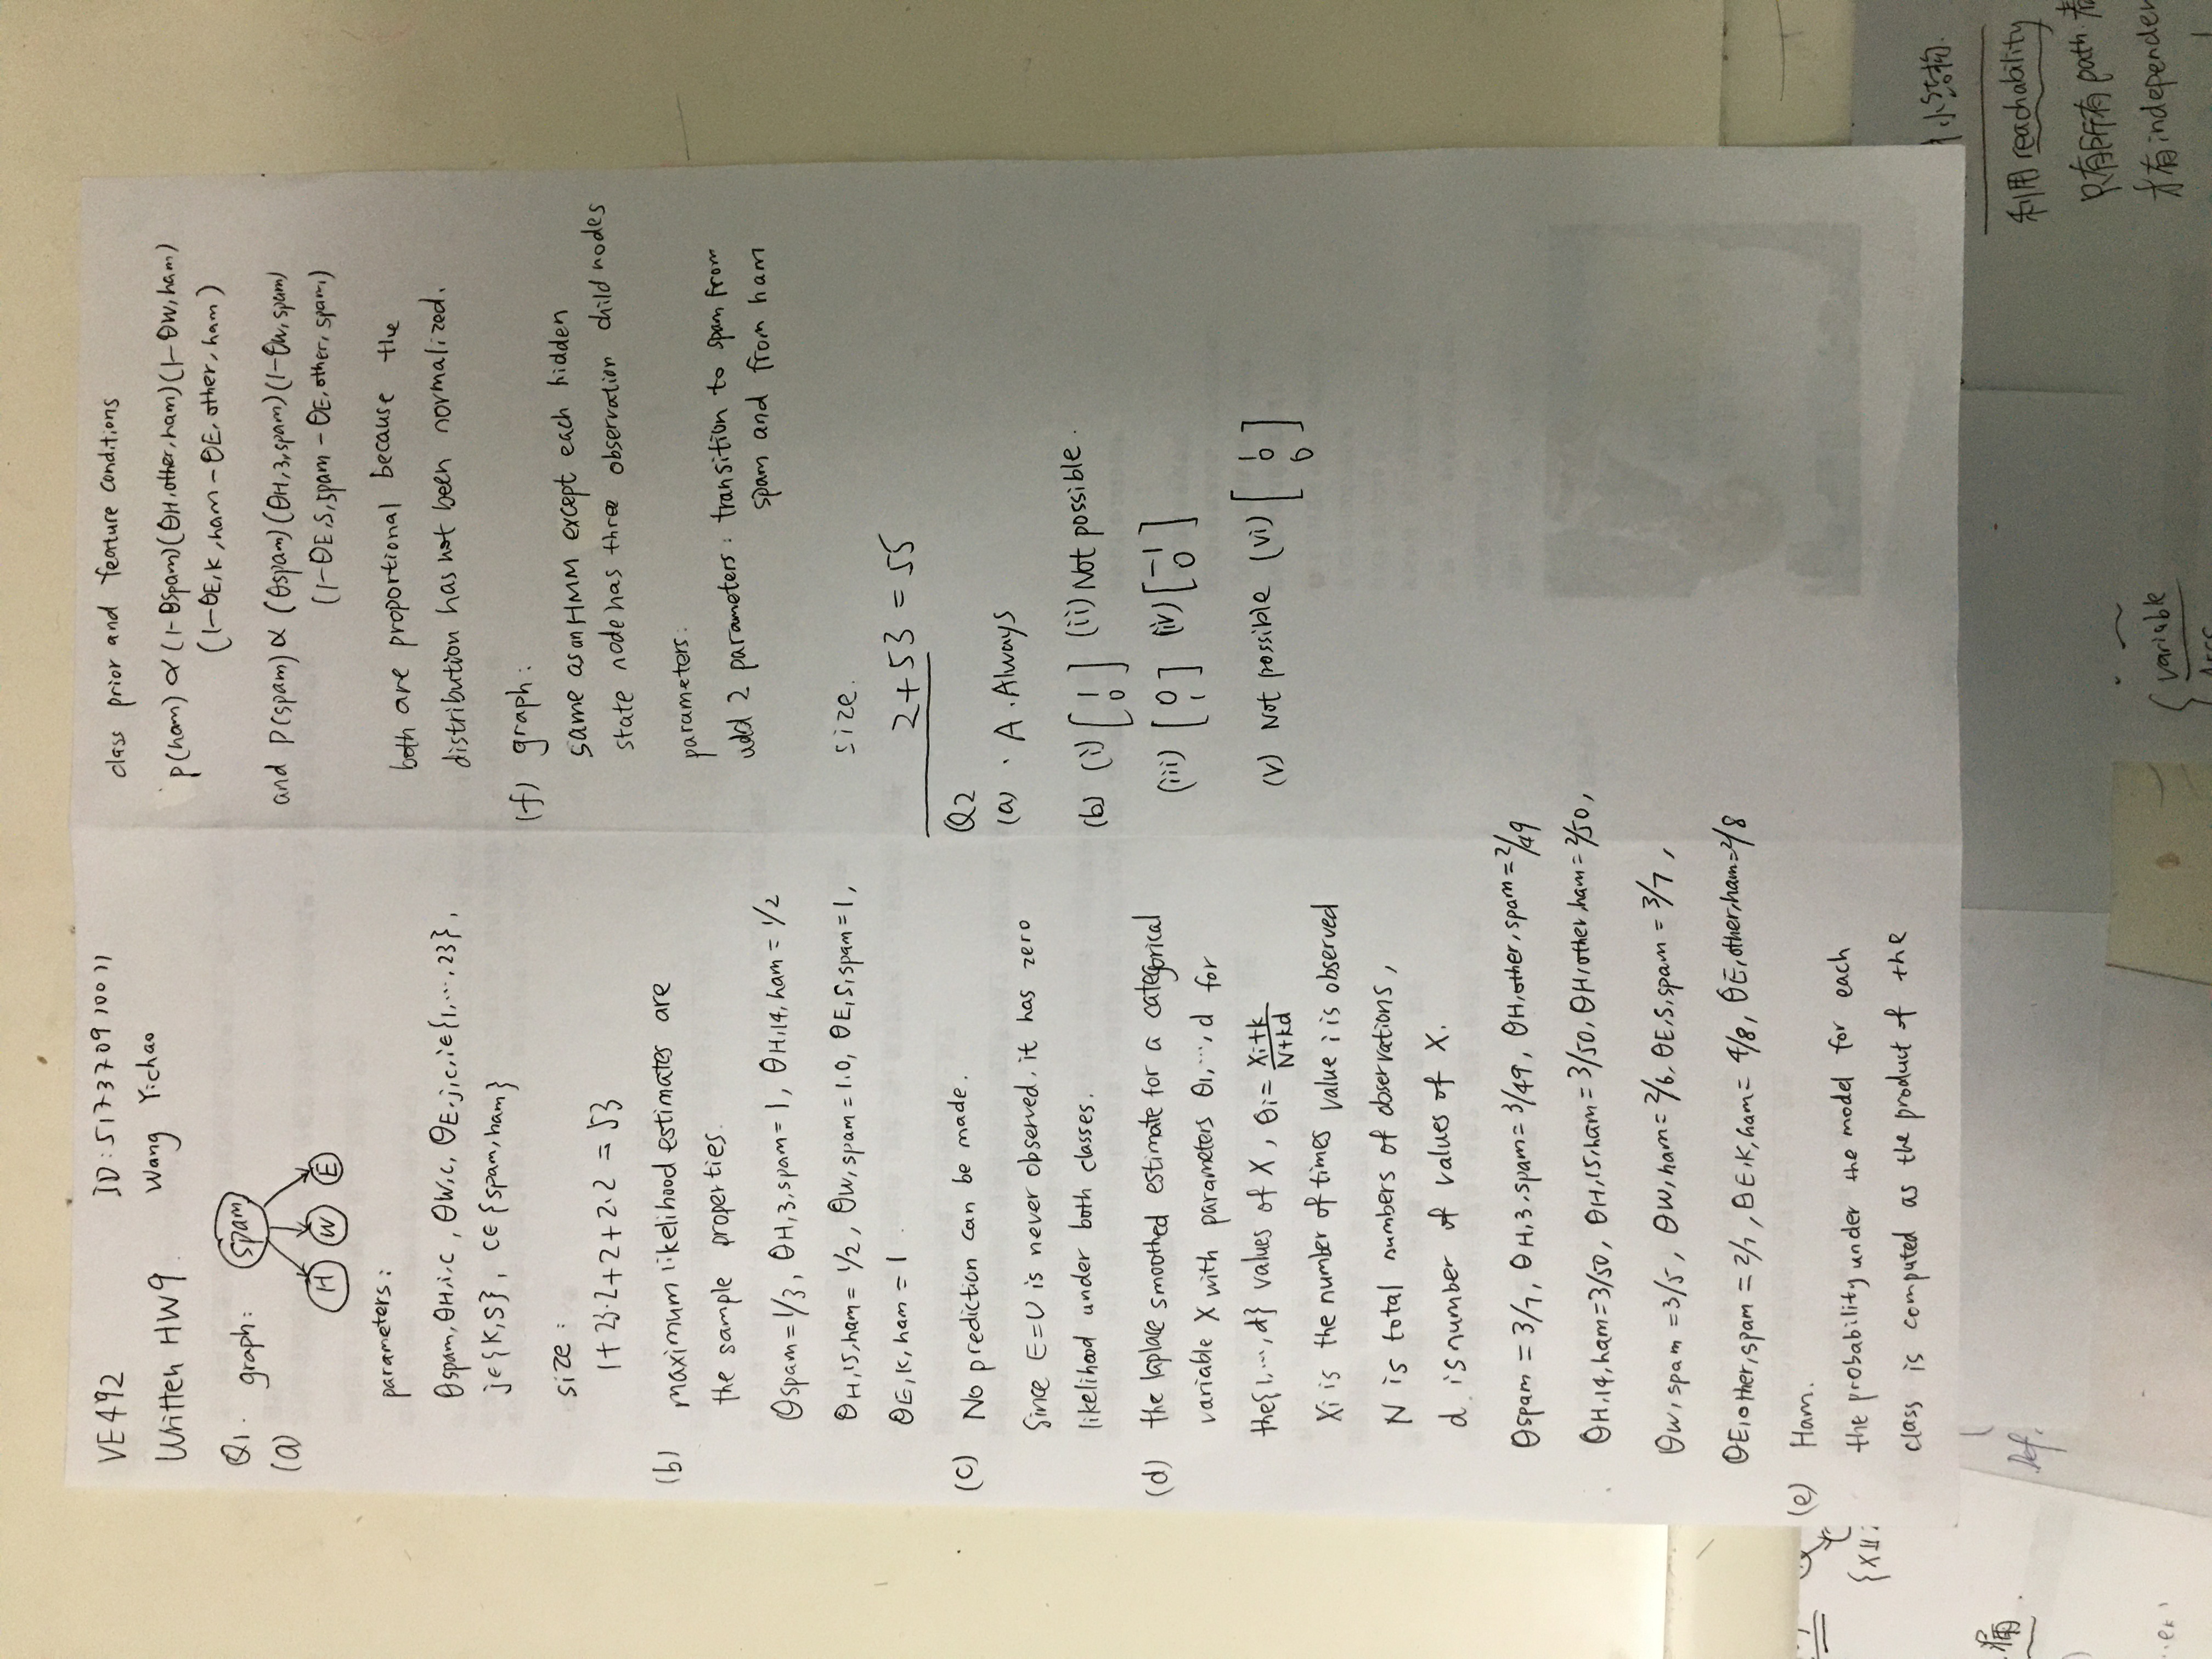 VE492
ID: 517370910011
Written HW9.
Wang Yichao
Q1.
(a)
graph:
spam
H W E
parameters:
θspam, θH,i,c, θW,c, θE,j,c, i∈{1,⋯,23},
j∈{K,S}, c∈{spam,ham}
size:
1+23·2+2+2·2 = 53
(b) maximum likelihood estimates are
the sample properties.
θspam=1/3, θH,3,spam=1, θH,14,ham=1/2
θH,15,ham=1/2, θW,spam=1.0, θE,S,spam=1,
θE,K,ham=1
(c) No prediction can be made.
Since E=U is never observed, it has zero
likelihood under both classes.
(d) the laplace smoothed estimate for a categorical
variable X with parameters θ1,⋯,d for
the{1,⋯,d} values of X, θi= Xi+k / N+kd
Xi is the number of times value i is observed
N is total numbers of observations,
d is number of values of X.
θspam = 3/7, θH,3,spam=3/49, θH,other,spam=2/49
θH,14,ham=3/50, θH,15,ham=3/50, θH,other,ham=2/50,
θW,spam=3/5, θW,ham=2/6, θE,S,spam=3/7,
θE,other,spam=2/7, θE,K,ham=4/8, θE,other,ham=2/8
(e) Ham.
the probability under the model for each
class is computed as the product of the
class prior and feature conditions
p(ham) ∝ (1-θspam)(θH,other,ham)(1-θW,ham)
(1-θE,K,ham-θE,other,ham)
and P(spam) ∝ (θspam)(θH,3,spam)(1-θW,spam)
(1-θE,S,spam-θE,other,spam)
both are proportional because the
distribution has not been normalized.
(f) graph:
same as an HMM except each hidden
state node has three observation child nodes
parameters:
add 2 parameters: transition to spam from
spam and from ham
size.
2+53 = 55
Q2
(a) · A. Always
(b) (i) [1 0] (ii) Not possible.
(iii) [0 1] (iv) [-1 0]
(v) Not possible (vi) [1 0 0]
{X⫫
漏
Def.
小结构.
利用 reachability
只有所有 path
才有independen
variable